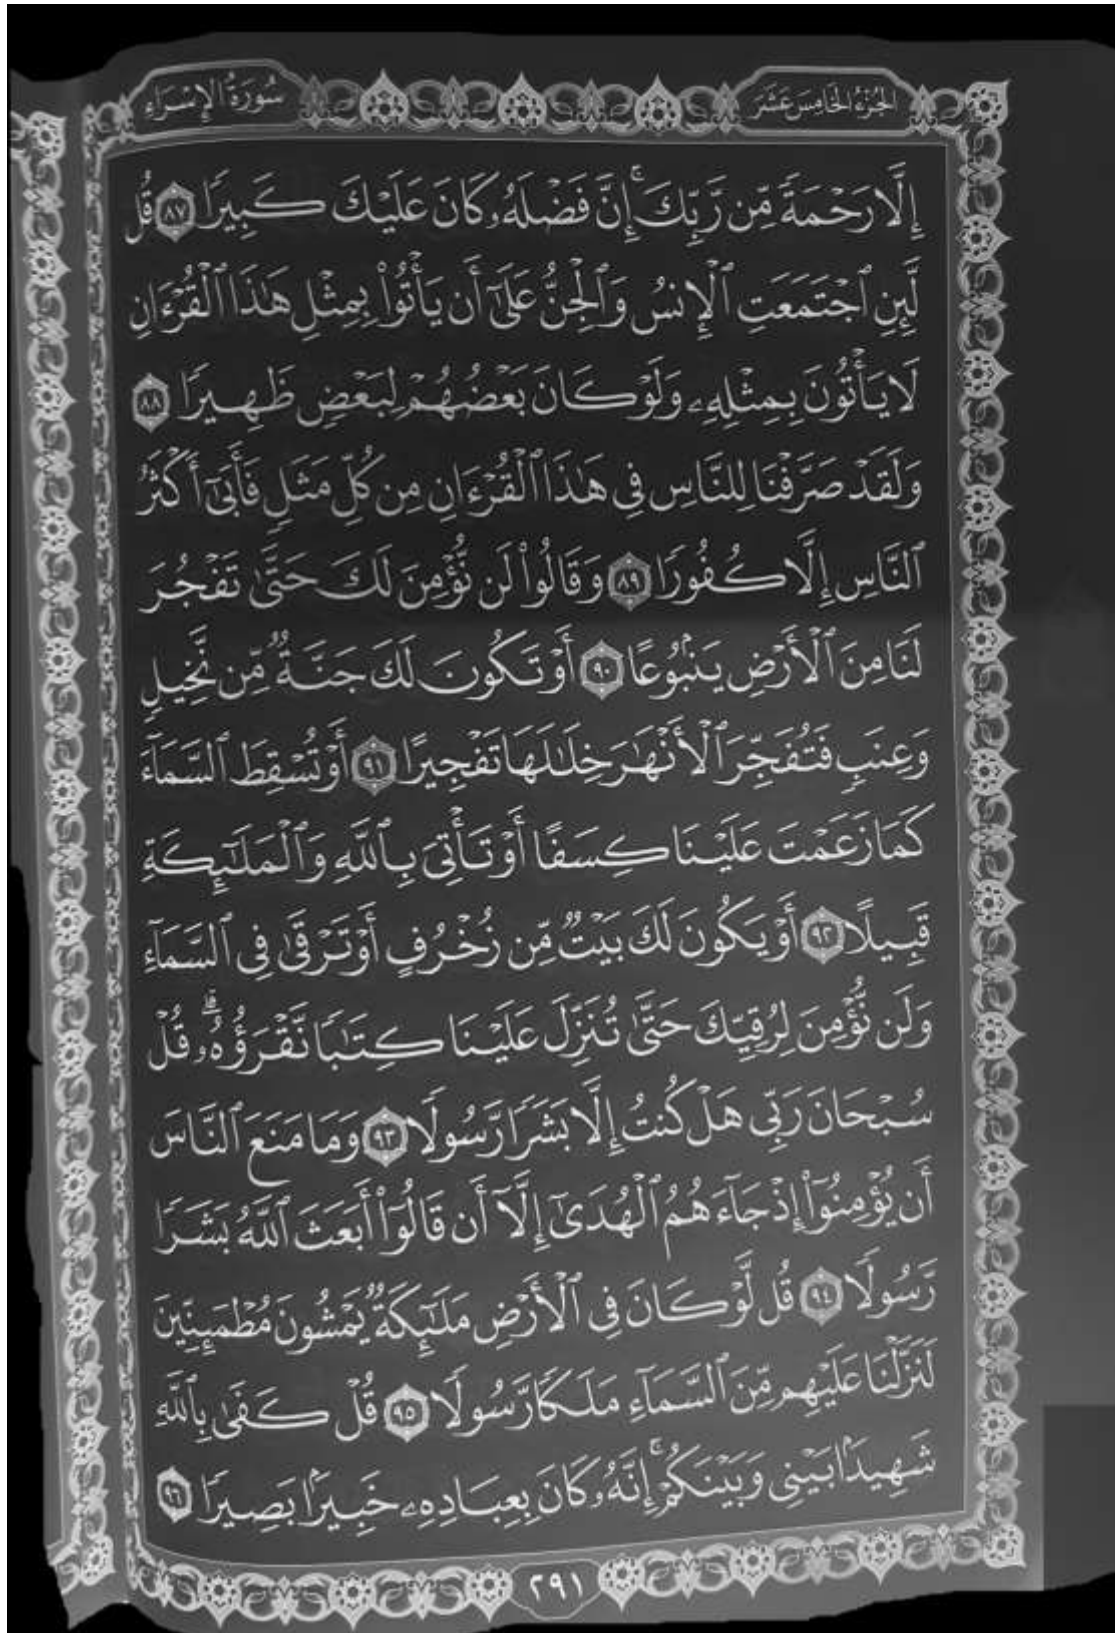 الجزء الخامس عشر
سورة الإسراء
إِلَّا رَحْمَةً مِّن رَّبِّكَ ۚ إِنَّ فَضْلَهُۥ كَانَ عَلَيْكَ كَبِيرًا ٨٧ قُل
لَّئِنِ ٱجْتَمَعَتِ ٱلْإِنسُ وَٱلْجِنُّ عَلَىٰٓ أَن يَأْتُوا۟ بِمِثْلِ هَٰذَا ٱلْقُرْءَانِ
لَا يَأْتُونَ بِمِثْلِهِۦ وَلَوْ كَانَ بَعْضُهُمْ لِبَعْضٍ ظَهِيرًا ٨٨
وَلَقَدْ صَرَّفْنَا لِلنَّاسِ فِى هَٰذَا ٱلْقُرْءَانِ مِن كُلِّ مَثَلٍ فَأَبَىٰٓ أَكْثَرُ
ٱلنَّاسِ إِلَّا كُفُورًا ٨٩ وَقَالُوا۟ لَن نُّؤْمِنَ لَكَ حَتَّىٰ تَفْجُرَ
لَنَا مِنَ ٱلْأَرْضِ يَنۢبُوعًا ٩٠ أَوْ تَكُونَ لَكَ جَنَّةٌ مِّن نَّخِيلٍ
وَعِنَبٍ فَتُفَجِّرَ ٱلْأَنْهَٰرَ خِلَٰلَهَا تَفْجِيرًا ٩١ أَوْ تُسْقِطَ ٱلسَّمَآءَ
كَمَا زَعَمْتَ عَلَيْنَا كِسَفًا أَوْ تَأْتِىَ بِٱللَّهِ وَٱلْمَلَٰٓئِكَةِ
قَبِيلًا ٩٢ أَوْ يَكُونَ لَكَ بَيْتٌ مِّن زُخْرُفٍ أَوْ تَرْقَىٰ فِى ٱلسَّمَآءِ
وَلَن نُّؤْمِنَ لِرُقِيِّكَ حَتَّىٰ تُنَزِّلَ عَلَيْنَا كِتَٰبًا نَّقْرَؤُهُۥ ۗ قُلْ
سُبْحَانَ رَبِّى هَلْ كُنتُ إِلَّا بَشَرًا رَّسُولًا ٩٣ وَمَا مَنَعَ ٱلنَّاسَ
أَن يُؤْمِنُوٓا۟ إِذْ جَآءَهُمُ ٱلْهُدَىٰٓ إِلَّآ أَن قَالُوٓا۟ أَبَعَثَ ٱللَّهُ بَشَرًا
رَّسُولًا ٩٤ قُل لَّوْ كَانَ فِى ٱلْأَرْضِ مَلَٰٓئِكَةٌ يَمْشُونَ مُطْمَئِنِّينَ
لَنَزَّلْنَا عَلَيْهِم مِّنَ ٱلسَّمَآءِ مَلَكًا رَّسُولًا ٩٥ قُلْ كَفَىٰ بِٱللَّهِ
شَهِيدًۢا بَيْنِى وَبَيْنَكُمْ ۚ إِنَّهُۥ كَانَ بِعِبَادِهِۦ خَبِيرًۢا بَصِيرًا ٩٦
٢٩١